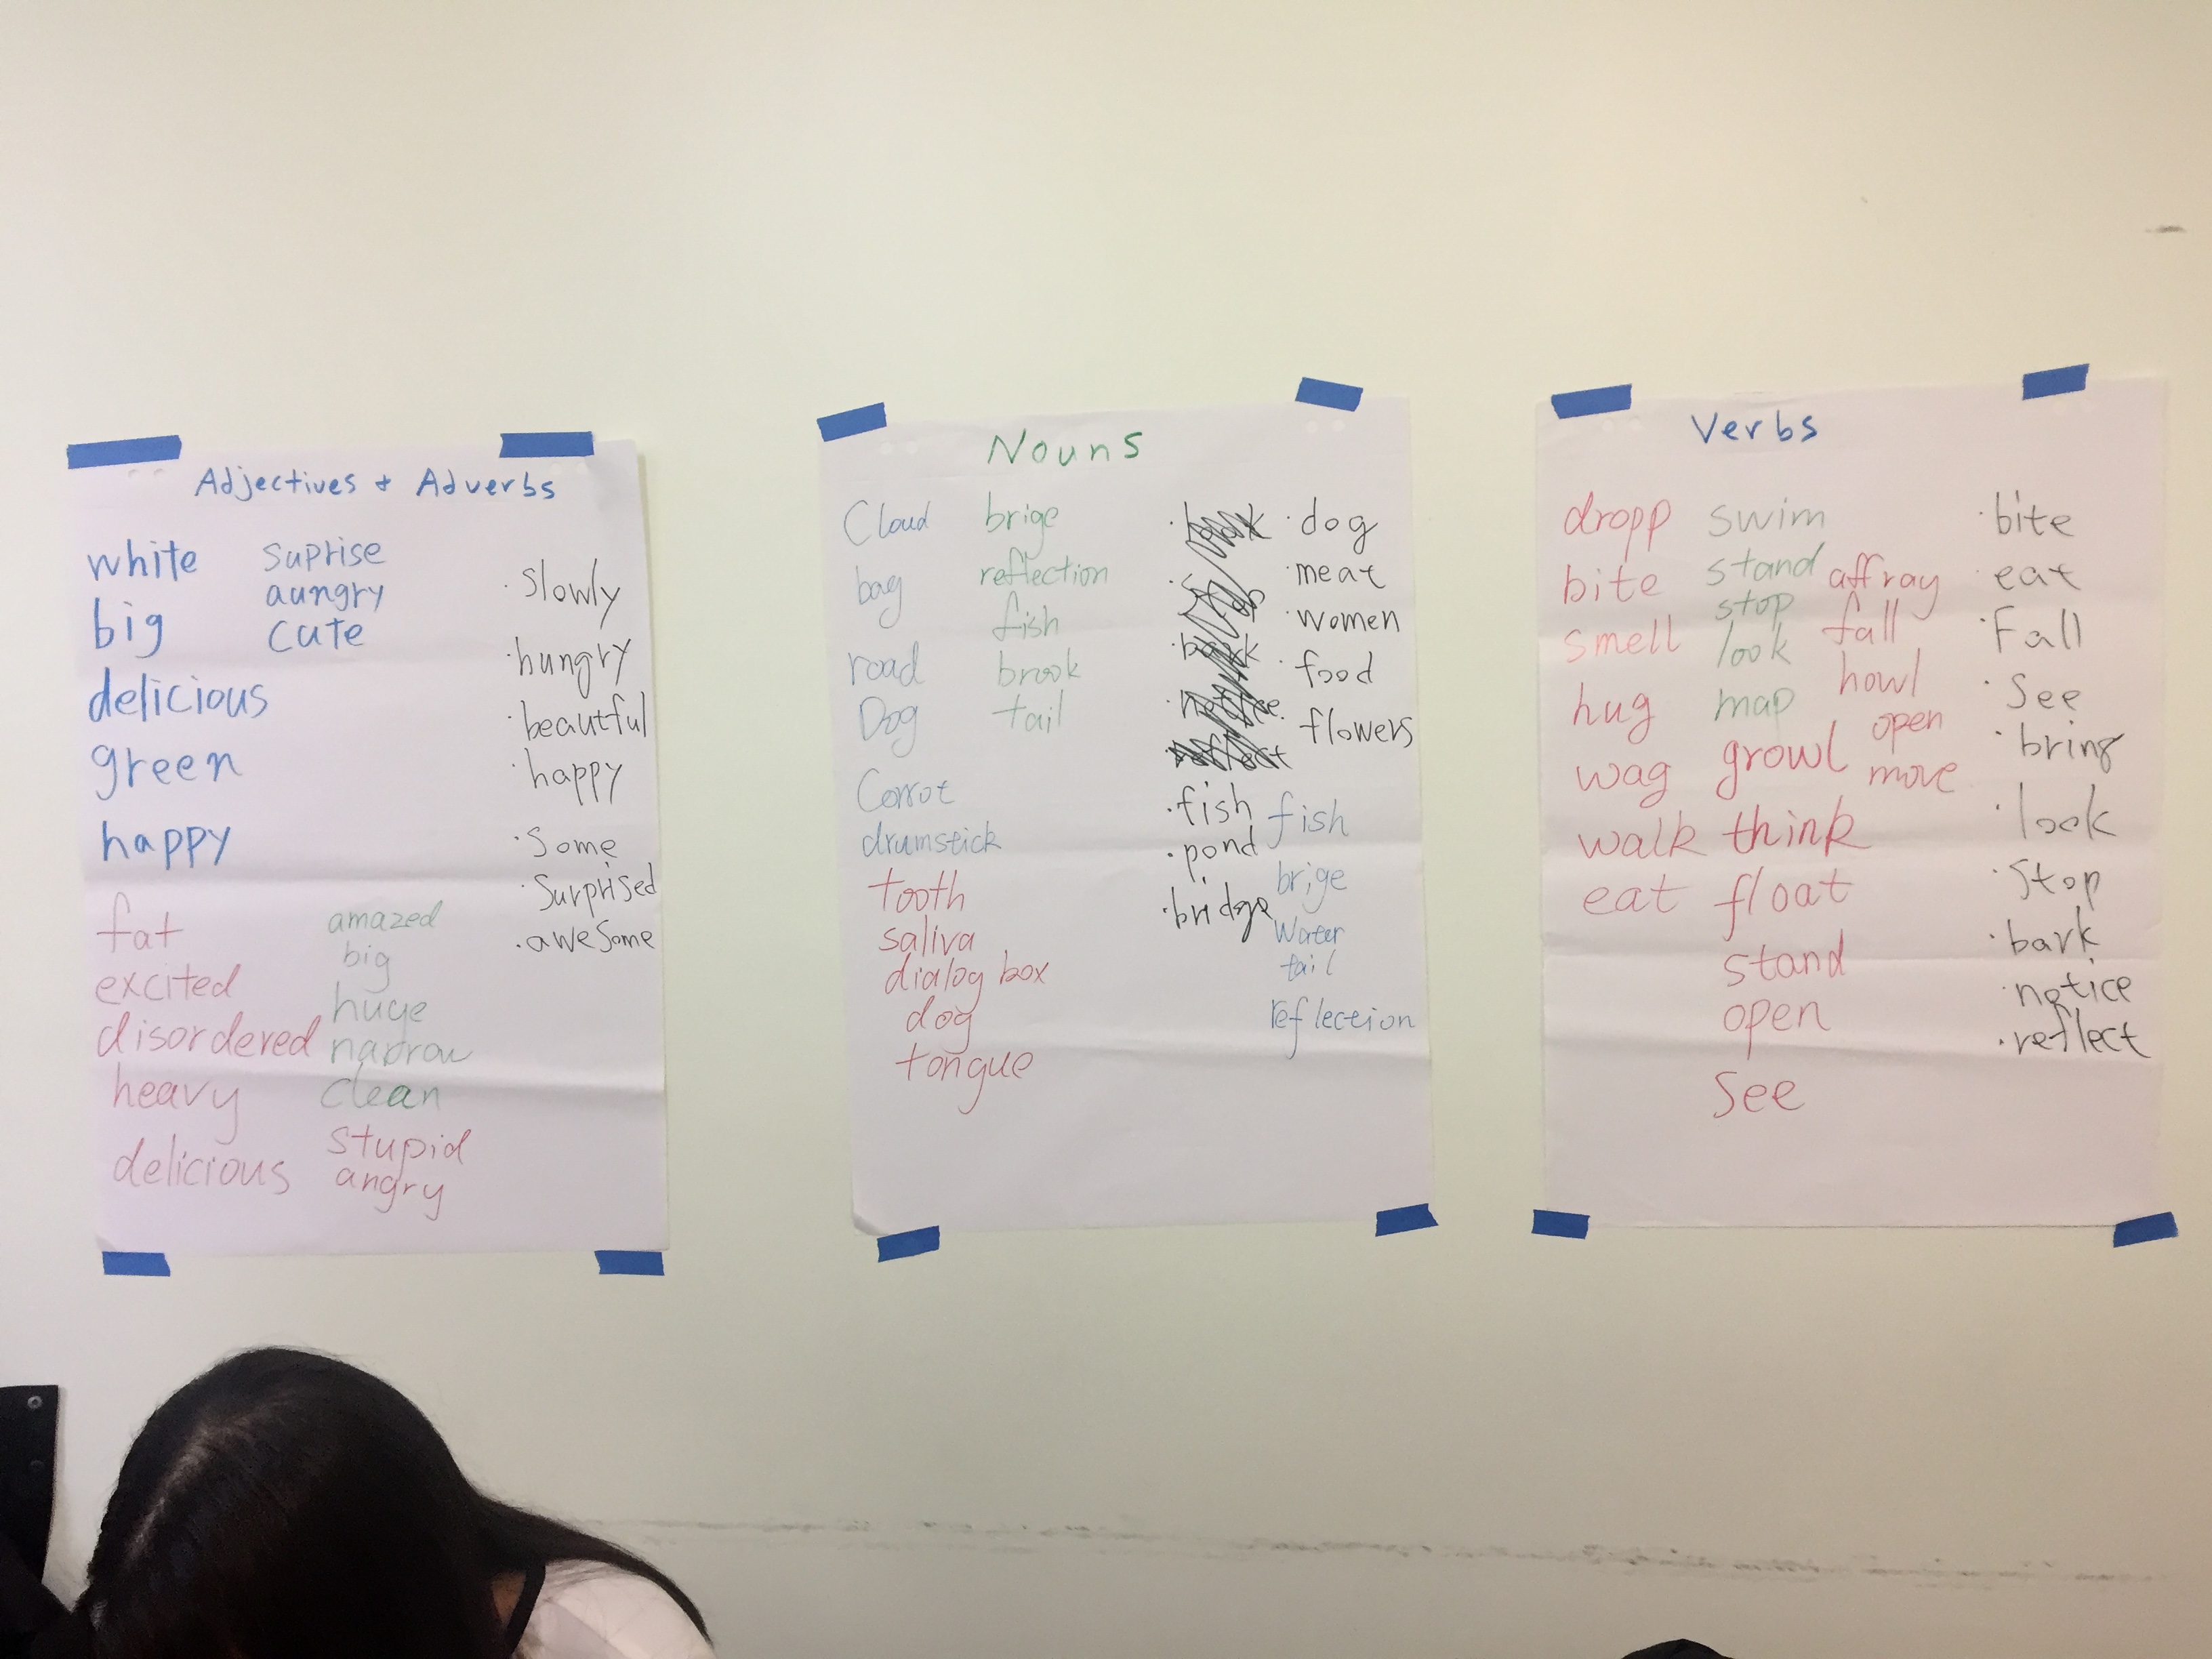 Adjectives + Adverbs
white
big
delicious
green
happy
suprise
aungry
cute
· slowly
· hungry
· beautful
· happy
· Some
· Surprised
· awesome
fat
excited
disordered
heavy
delicious
amazed
big
huge
narrow
clean
stupid
angry
Nouns
Cloud
bag
road
Dog
Corrot
drumstick
tooth
saliva
dialog box
dog
tongue
brige
reflection
fish
brook
tail
· fish
· pond
· bridge
· dog
· meat
· women
· food
· flowers
fish
brige
Water
tail
reflection
Verbs
dropp
bite
smell
hug
wag
walk
eat
swim
stand
stop
look
map
growl
think
float
stand
open
See
affray
fall
howl
open
move
· bite
· eat
· Fall
· See
· bring
· look
· Stop
· bark
· notice
· reflect